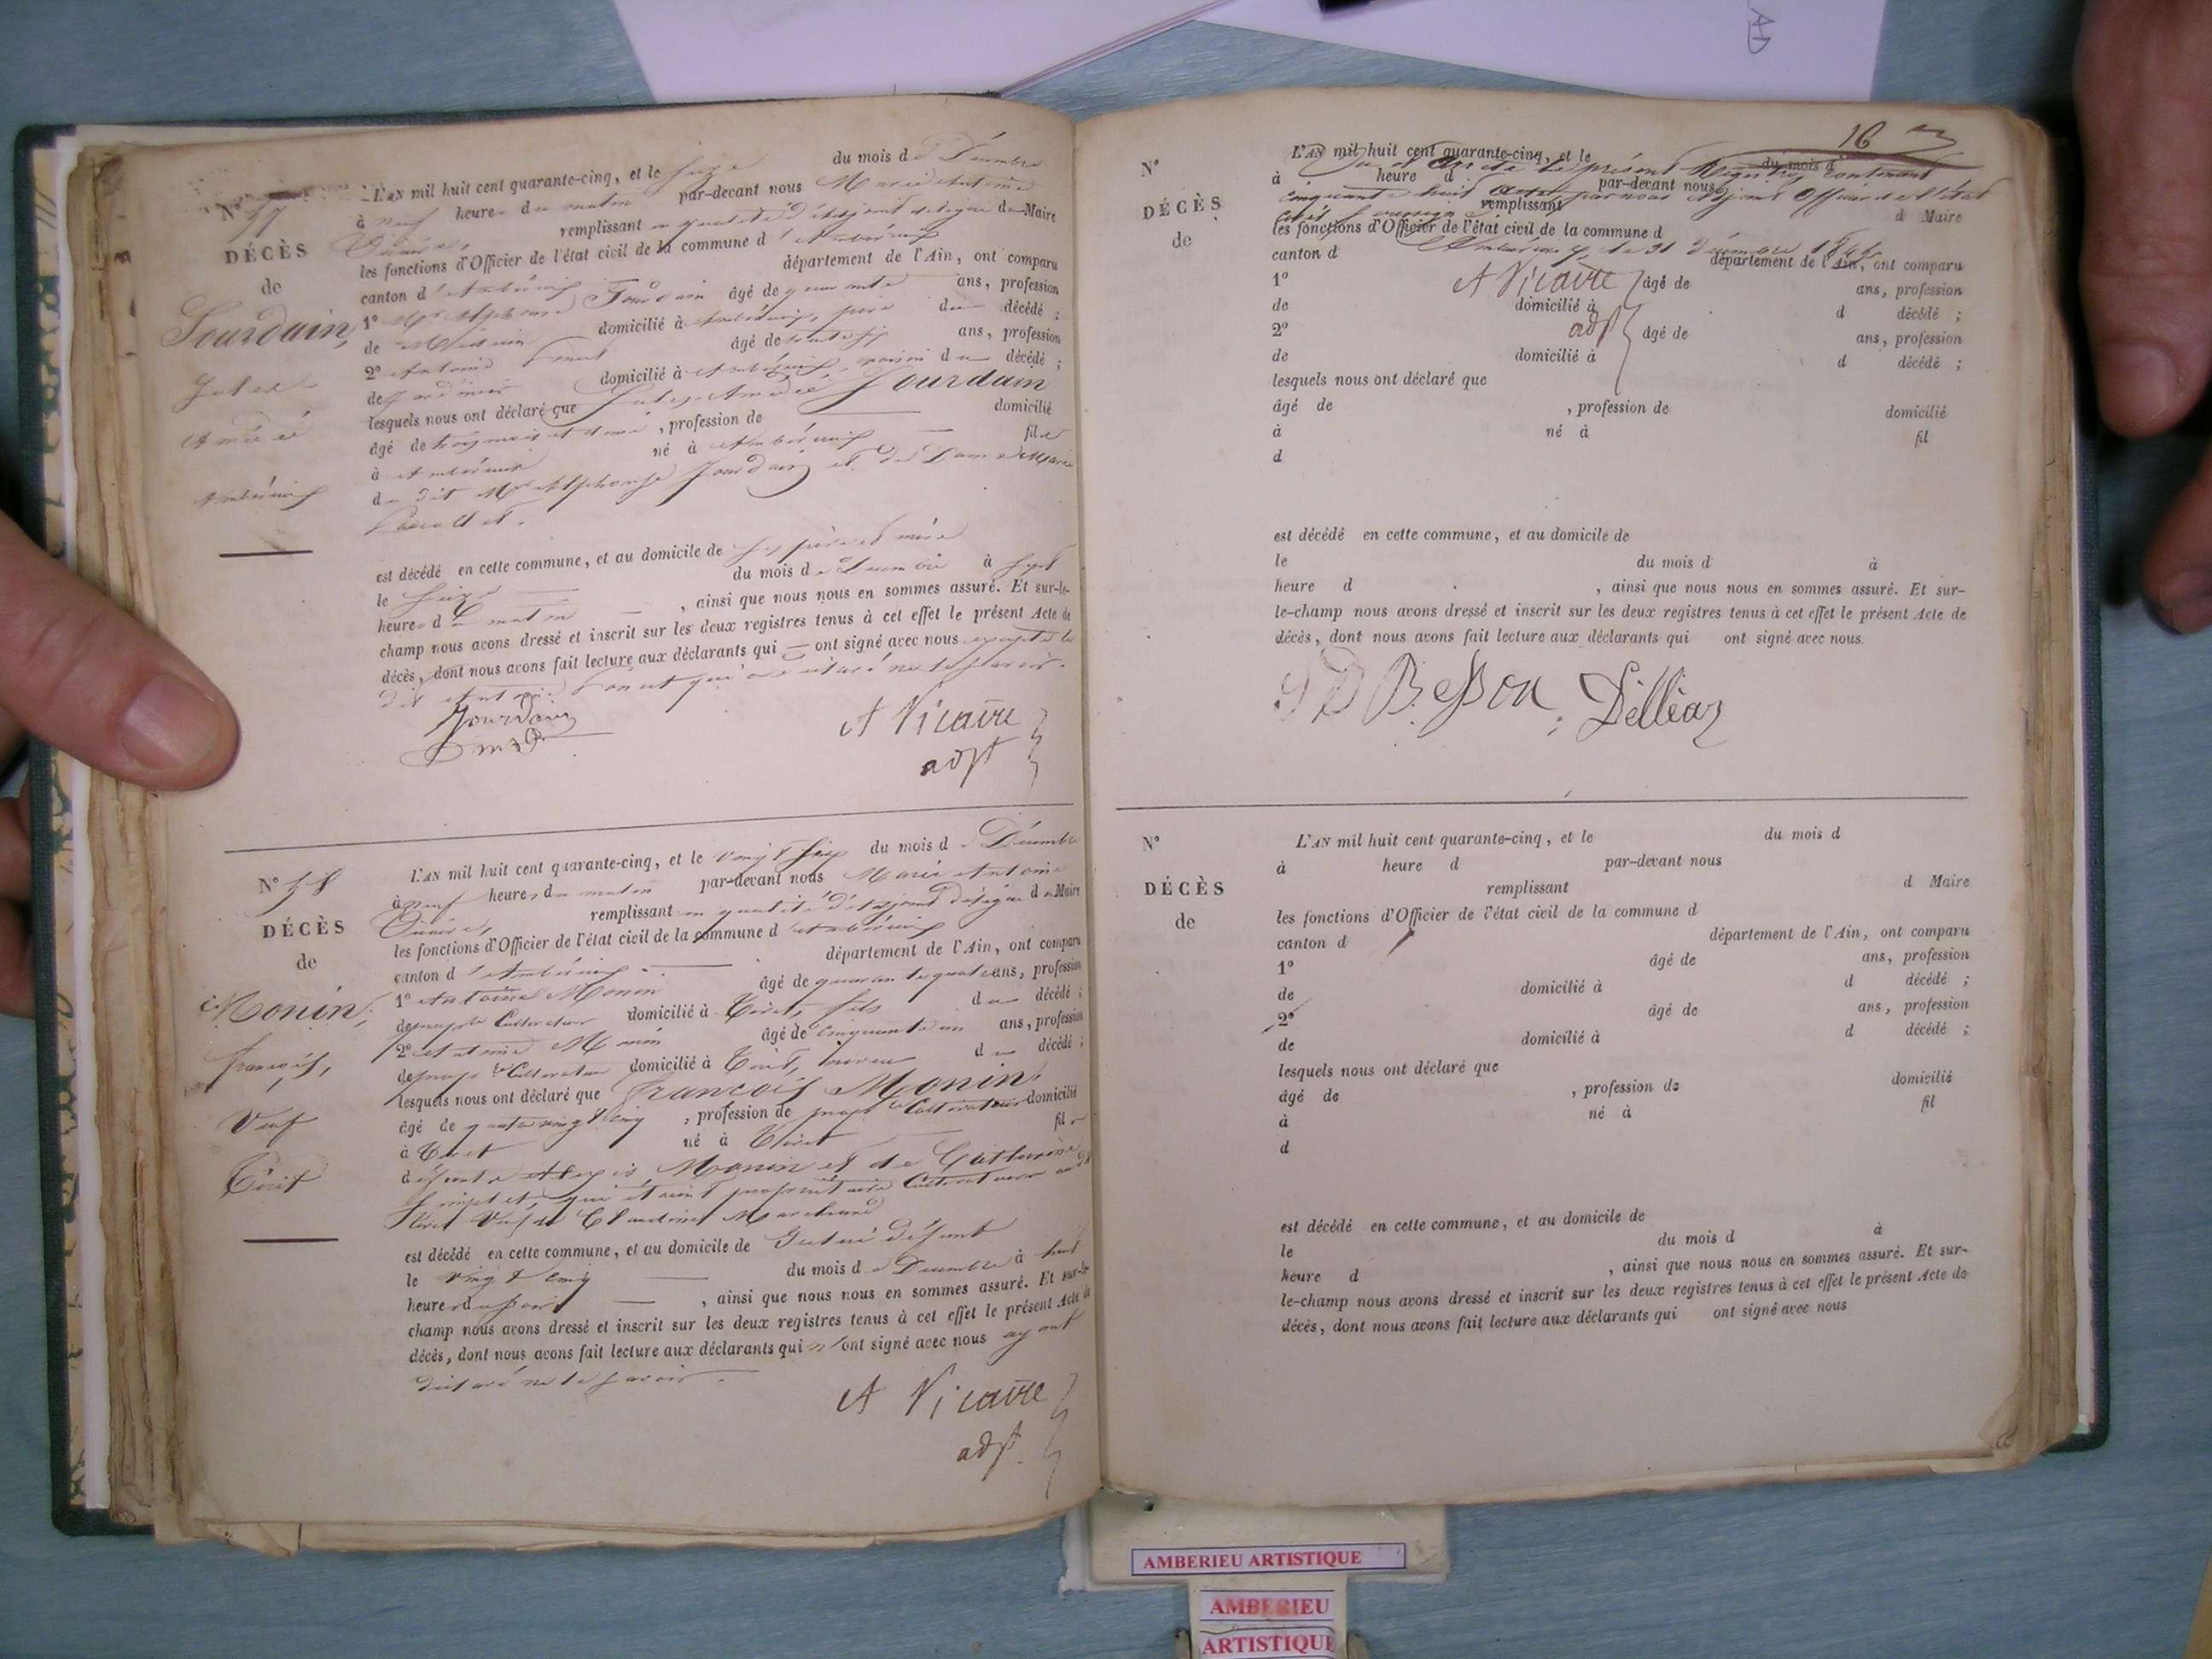 N° 57
DÉCÈS
de
Jourdain,
Jules
Amédé
Ambérieux
L'AN mil huit cent quarante-cinq, et le seize du mois de Décembre
à neuf heures du matin par-devant nous Marie Antoine
Vicaire, remplissant en qualité d'adjoint délégué du Maire
les fonctions d'Officier de l'état civil de la commune d'Ambérieux
canton d'Ambérieux département de l'Ain, ont comparu
1° Mr Alphonse Jourdain âgé de quarante ans, profession
de Médecin domicilié à Ambérieux, père du décédé ;
2° Antoine âgé de ans, profession
de jardinier domicilié à Ambérieux, voisin du décédé ;
lesquels nous ont déclaré que Jules Amédé Jourdain
âgé de trois mois et demi, profession de domicilié
à Ambérieux né à Ambérieux fils
du dit Mr Alphonse Jourdain et de Dame Marie
est décédé en cette commune, et au domicile de ses père et mère
le seize du mois de Décembre à sept
heures du matin, ainsi que nous nous en sommes assuré. Et sur-le-
champ nous avons dressé et inscrit sur les deux registres tenus à cet effet le présent Acte de
décès, dont nous avons fait lecture aux déclarants qui ont signé avec nous excepté le
dit Antoine qui a déclaré ne le savoir.
Jourdain
A Vicaire
adjt
N° 58
DÉCÈS
de
Monin,
françois,
Veuf
Tiret
L'AN mil huit cent quarante-cinq, et le vingt six du mois de Décembre
à neuf heures du matin par-devant nous Marie Antoine
Vicaire, remplissant en qualité d'adjoint délégué du Maire
les fonctions d'Officier de l'état civil de la commune d'Ambérieux
canton d'Ambérieux département de l'Ain, ont comparu
1° Antoine Monin âgé de quarante quatre ans, profession
de propre Cultivateur domicilié à Tiret, fils du décédé ;
2° Antoine Monin âgé de cinquante un ans, profession
de propre Cultivateur domicilié à Tiret, neveu du décédé ;
lesquels nous ont déclaré que François Monin,
âgé de quatre vingt cinq, profession de propre Cultivateur domicilié
à Tiret né à Tiret fils
défunts Alexis Monin et de Catherine
qui étaient propriétaires Cultivateurs au dit
Tiret Veuf de Claudine Marchand
est décédé en cette commune, et au domicile de du défunt
le vingt cinq du mois de Décembre à huit
heures du soir, ainsi que nous nous en sommes assuré. Et sur-le-
champ nous avons dressé et inscrit sur les deux registres tenus à cet effet le présent Acte de
décès, dont nous avons fait lecture aux déclarants qui n'ont signé avec nous ayant
déclaré ne le savoir.
A Vicaire
adjt.
16
N°
DÉCÈS
de
L'AN mil huit cent quarante-cinq, et le du mois d
Vu et Arrêté le présent Registre contenant
à heure d par-devant nous
cinquante huit actes par nous Adjoint Officier de l'état
remplissant d Maire
civil soussigné
les fonctions d'Officier de l'état civil de la commune d
Ambérieux, le 31 décembre 1845
canton d département de l'Ain, ont comparu
A Vicaire
adjt
1° âgé de ans, profession
de domicilié à d décédé ;
2° âgé de ans, profession
de domicilié à d décédé ;
lesquels nous ont déclaré que
âgé de , profession de domicilié
à né à fil
d
est décédé en cette commune, et au domicile de
le du mois d à
heure d , ainsi que nous nous en sommes assuré. Et sur-
le-champ nous avons dressé et inscrit sur les deux registres tenus à cet effet le présent Acte de
décès, dont nous avons fait lecture aux déclarants qui ont signé avec nous
Besson
N°
DÉCÈS
de
L'AN mil huit cent quarante-cinq, et le du mois d
à heure d par-devant nous
remplissant d Maire
les fonctions d'Officier de l'état civil de la commune d
canton d département de l'Ain, ont comparu
1° âgé de ans, profession
de domicilié à d décédé ;
2° âgé de ans, profession
de domicilié à d décédé ;
lesquels nous ont déclaré que
âgé de , profession de domicilié
à né à fil
d
est décédé en cette commune, et au domicile de
le du mois d à
heure d , ainsi que nous nous en sommes assuré. Et sur-
le-champ nous avons dressé et inscrit sur les deux registres tenus à cet effet le présent Acte de
décès, dont nous avons fait lecture aux déclarants qui ont signé avec nous
AMBERIEU ARTISTIQUE
AMBERIEU
ARTISTIQUE